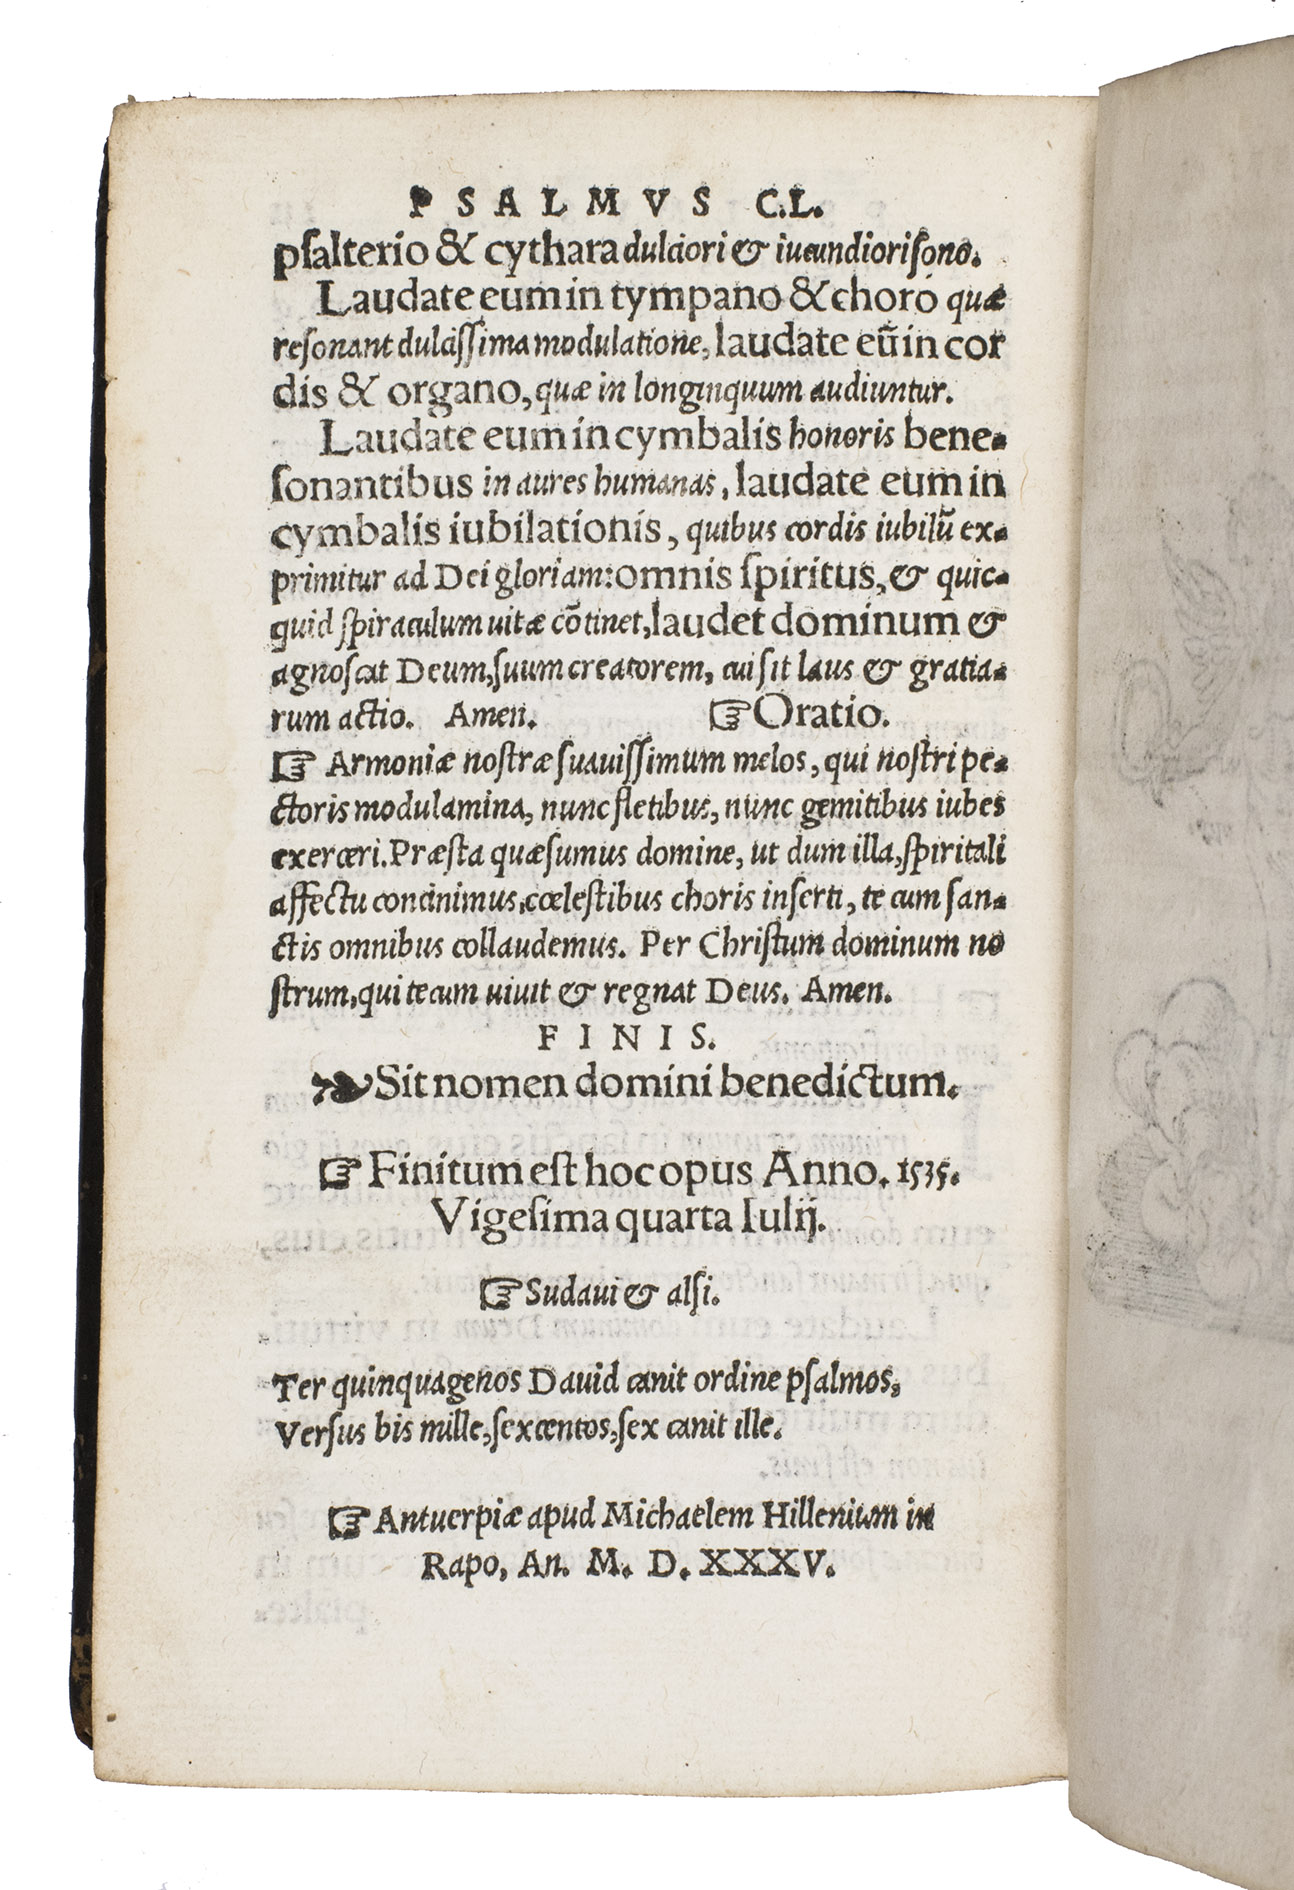 PSALMVS C.L.
pſalterio & cythara dulciori & iucundiori ſono.
Laudate eum in tympano & choro quæ
reſonant dulciſſima modulatione, laudate eū in cor
dis & organo, quæ in longinquum audiuntur.
Laudate eum in cymbalis honoris bene-
ſonantibus in aures humanas, laudate eum in
cymbalis iubilationis, quibus cordis iubilū ex-
primitur ad Dei gloriam: omnis ſpiritus, & quic-
quid ſpiraculum uitæ cōtinet, laudet dominum &
agnoſcat Deum, ſuum creatorem, cui ſit laus & gratia-
rum actio. Amen. ☞Oratio.
☞ Armoniæ noſtræ ſuauiſſimum melos, qui noſtri pe-
ctoris modulamina, nunc fletibus, nunc gemitibus iubes
exerceri. Præſta quæſumus domine, ut dum illa, ſpiritali
affectu concinimus, cœleſtibus choris inſerti, te cum ſan-
ctis omnibus collaudemus. Per Chriſtum dominum no
ſtrum, qui tecum uiuit & regnat Deus. Amen.
FINIS.
❧Sit nomen domini benedictum.
☞Finitum eſt hoc opus Anno. 1535.
Vigeſima quarta Iulij.
☞Sudaui & alſi.
Ter quinquagenos Dauid canit ordine pſalmos,
Verſus bis mille, ſexcentos, ſex canit ille.
☞Antuerpiæ apud Michaelem Hillenium in
Rapo, An. M. D. XXXV.